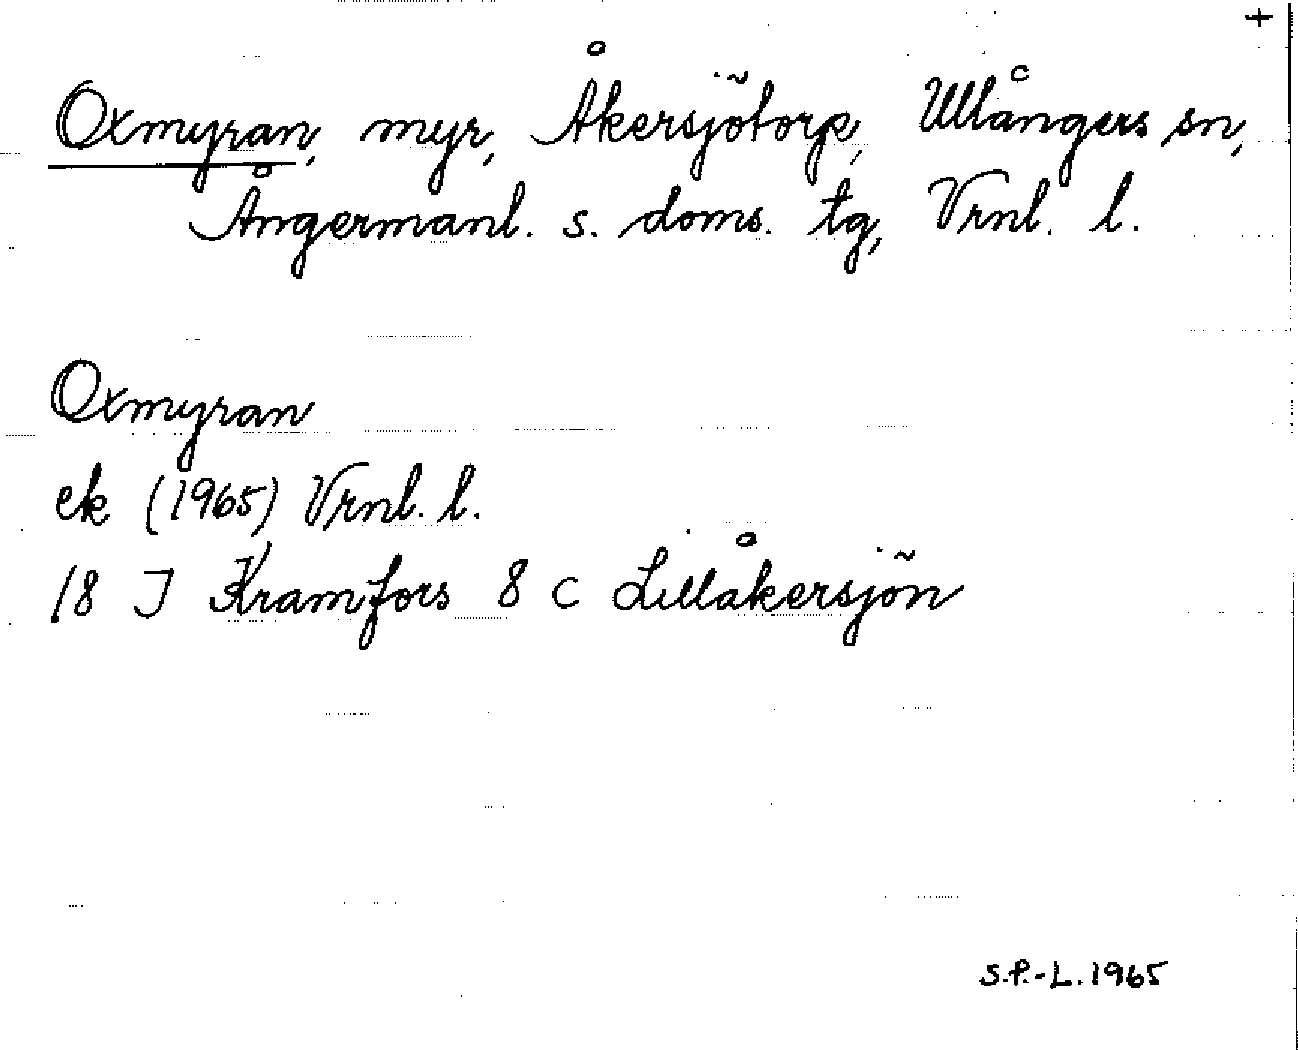 +
Oxmyran, myr, Åkersjötorp, Ullångers sn,
Ångermanl. s. doms. tg, Vrnl. l.
Oxmyran
ek (1965) Vrnl. l.
18 J Kramfors 8 c Lillåkersjön
S.P.-L. 1965